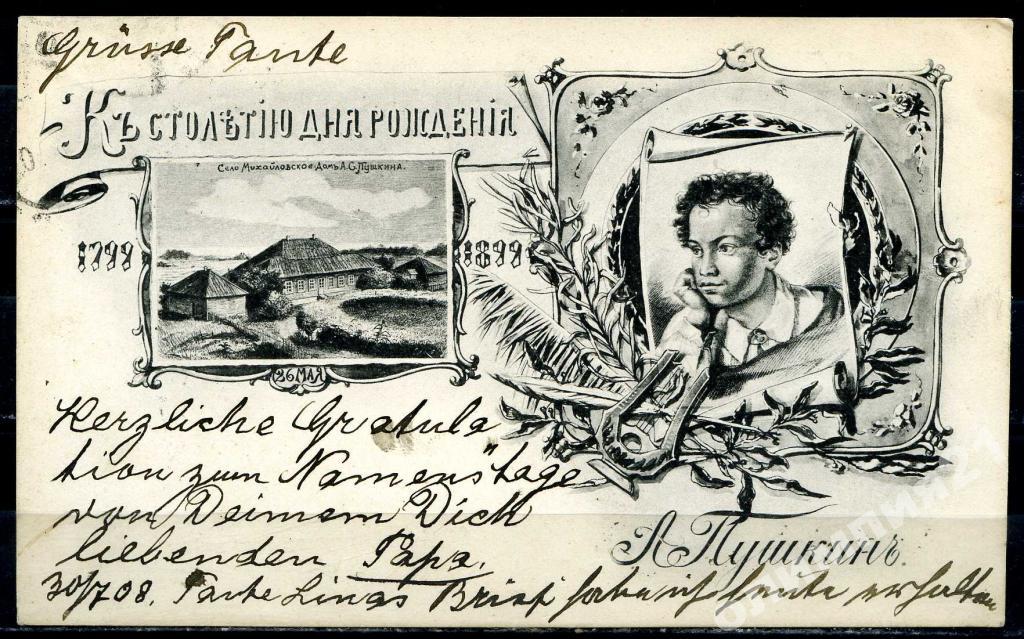 Grüsse Tante
Къ столѣтію дня рожденія
Село Михайловское Домъ А.С. Пушкина.
1799 1899
26 МАЯ
Herzliche Gratula
tion zum Namenstage
von Deinem Dich
liebenden Papa.
А Пушкинъ.
30/7 08. Tante Linas Brief habe ich heute erhalten